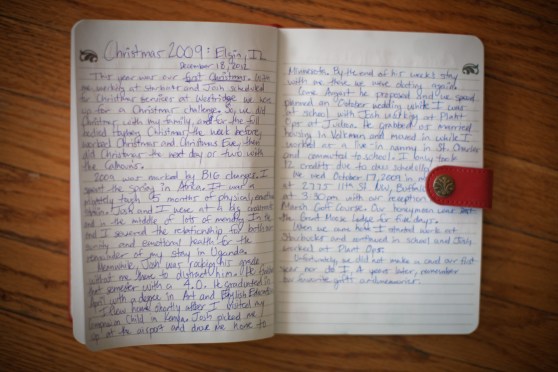 Christmas 2009: Elgin, IL
December 18, 2012
This year was our first Christmas. With
me working at Starbucks and Josh scheduled
for Christmas services at Westridge we were
up for a Christmas challenge. So, we did
Christmas with my family, and for the full
the week before,
worked Christmas and Christmas Eve, then
did Christmas the next day or two with
the Calhouns.
2009 was marked by BIG changes. I
spent the spring in Africa. It was a
months of physical, emotional
Josh and I were at a big crossroads
and in the middle of lots of
and I severed the relationship for both our
sanity and emotional health for the
remainder of my stay in Uganda.
Meanwhile, Josh was rocking his grades
without me there to distract him. He finished
that semester with a 4.0. He graduated in
April with a degree in Art and English Education.
I flew home shortly after I visited my
Compassion Child in Kenya. Josh picked me
up at the airport and drove me home to
Minnesota. By the end of his week's stay
with me there we were dating again.
Come August he proposed and we
planned an October wedding while I was
at school with Josh working at Platt
Ops at Judson. He as married
housing in Volkman and moved in while I
worked as a live-in nanny in St. Charles
and commuted to school. I only took
12 credits due to schedule.
We wed October 17, 2009 in
at 2775 11th St. NW, Buffalo
at 3:30pm with our reception
Golf Course. Our honeymoon was
the Grout Moose Lodge for five days.
When we came home I started work at
Starbucks and continued in school and Josh
worked at Platt Ops.
Unfortunately we did not make a card our first
year nor do I, 4 years later, remember
our favorite gifts and memories.